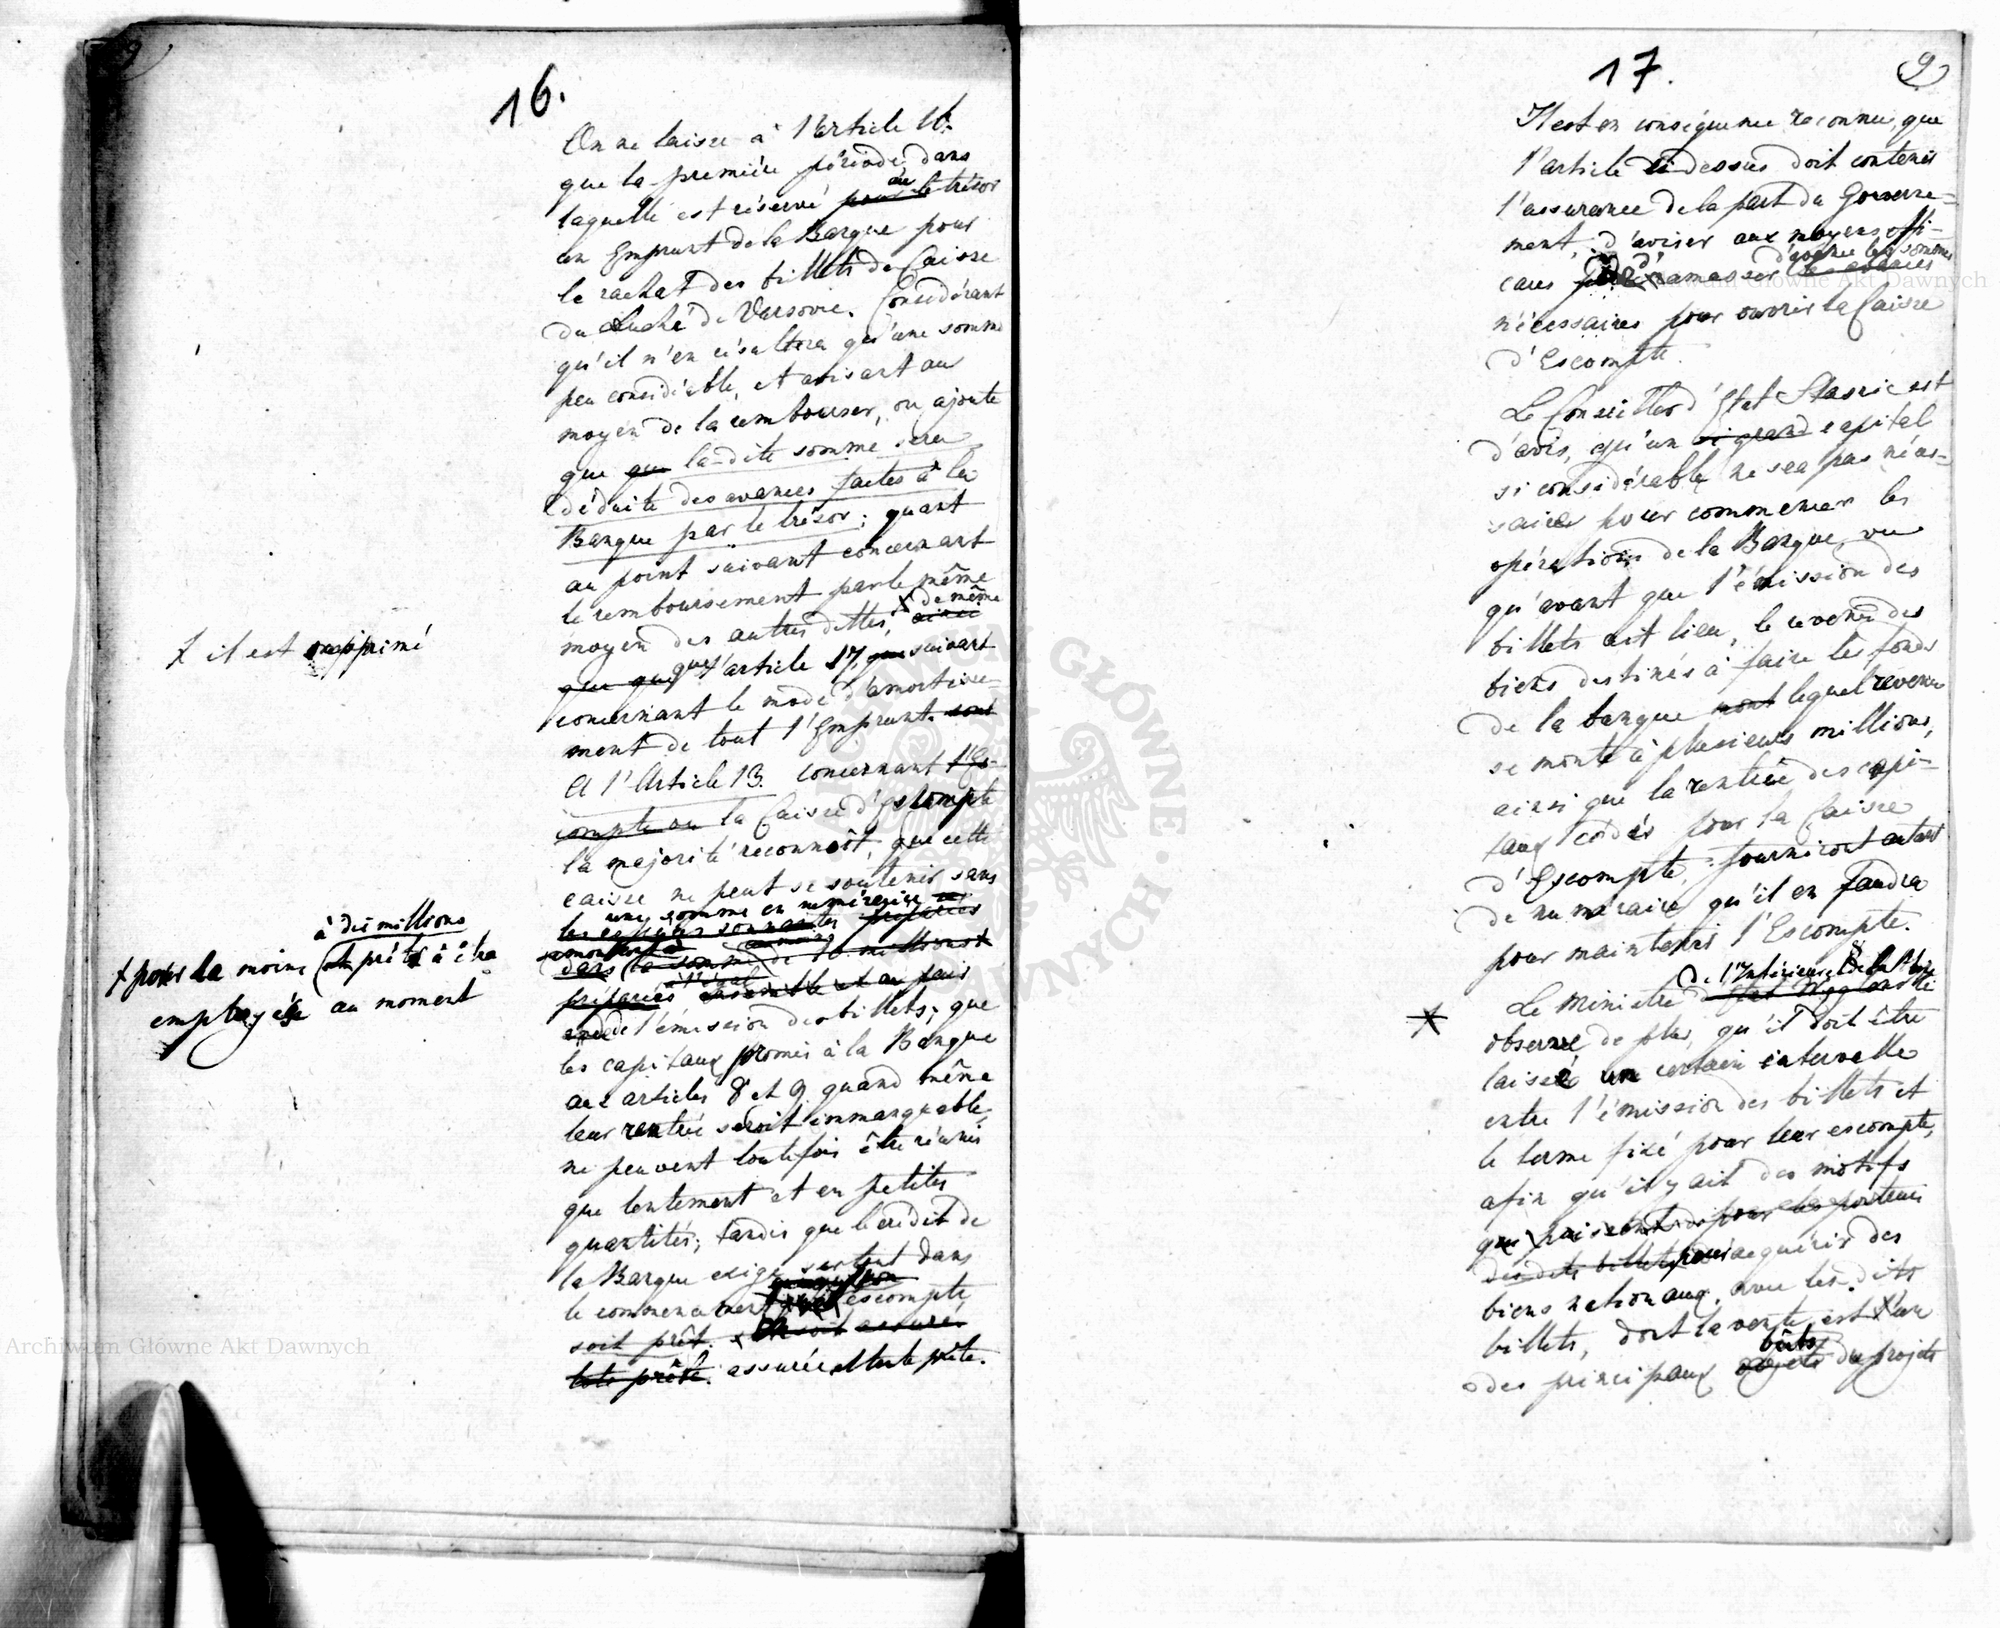 16.
On ne laisse à l'article 16.
que la première période, dans
laquelle est réservé pour au le trésor
un Emprunt de la Banque pour
le rachat des billets de Caisse
du Duché de Varsovie. Considérant
qu'il n'en résultera qu'une somme
peu considérable, et avisant au
moyen de la rembourser, on ajoute
que que la-dite somme sera
déduite des avances faites à la
Banque par le trésor; quant
au point suivant concernant
le remboursement par le même
moyen des autres dettes, ainsi de même
que que que l'article 17, que suivant
concernant le mode d'amortisse-
ment de tout l'Emprunt. sont
✗ il est supprimé
A l'Article 13. concernant l'Es-
compte ou la Caisse d'Escompte
la majorité reconnoît, que cette
caisse ne peut se soutenir sans
une somme en numéraire
les espèces sonnantes préparées
montant à au moins
dans la somme de 10 millions
préparées ensemble et au
de l'émission des billets; que
à dix millions
✗ pour la moins et prêts à être
employés au moment
les capitaux promis à la Banque
aux articles 8 et 9 quand même
leur rentrée seroit immanquable,
ne peuvent toutefois être réunis
que lentement et en petites
quantités; tandis que le crédit de
la Banque exige surtout dans
le commencement escompte
soit prêt. soit assuré
toute prête. assurée et toute prête.
17.
9
Il est en conséquence reconnu, que
l'article ci dessus doit contenir
l'assurance de la part du Gouverne-
ment, d'aviser aux moyens effi-
caces d'amasser d'avance les sommes
nécessaires pour ouvrir la Caisse
d'Escompte.
Le Conseiller d'Etat Staszic est
d'avis, qu'un si grand capital
si considérable ne sera pas néces-
saire pour commencer les
opérations de la Banque, vu
qu'avant que l'émission des
billets ait lieu, le revenu des
biens destinés à faire les fonds
de la banque mont lequel revenu
se monte à plusieurs millions,
ainsi que la rentrée des capi-
taux cédés pour la Caisse
d'Escompte, fourniront autant
de numéraire qu'il en faudra
pour maintenir l'Escompte.
de l'Intérieur
Le Ministre d'Etat
observe de plus, qu'il doit être
laissé un certain intervalle
entre l'émission des billets et
le terme fixé pour leur escompte,
afin qu'il y ait des motifs
qui puissent pour les porteurs
des dits billets pour acquérir des
biens nationaux avec les-dits
billets, dont la vente est l'un
des principaux objets buts du projet
Archiwum Główne Akt Dawnych
Archiwum Główne Akt Dawnych